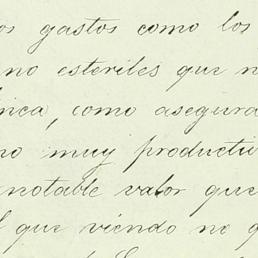 os gastos como los
no esteriles que n
nca, como asegura
no muy producti
notable valor que
l que viendo no q